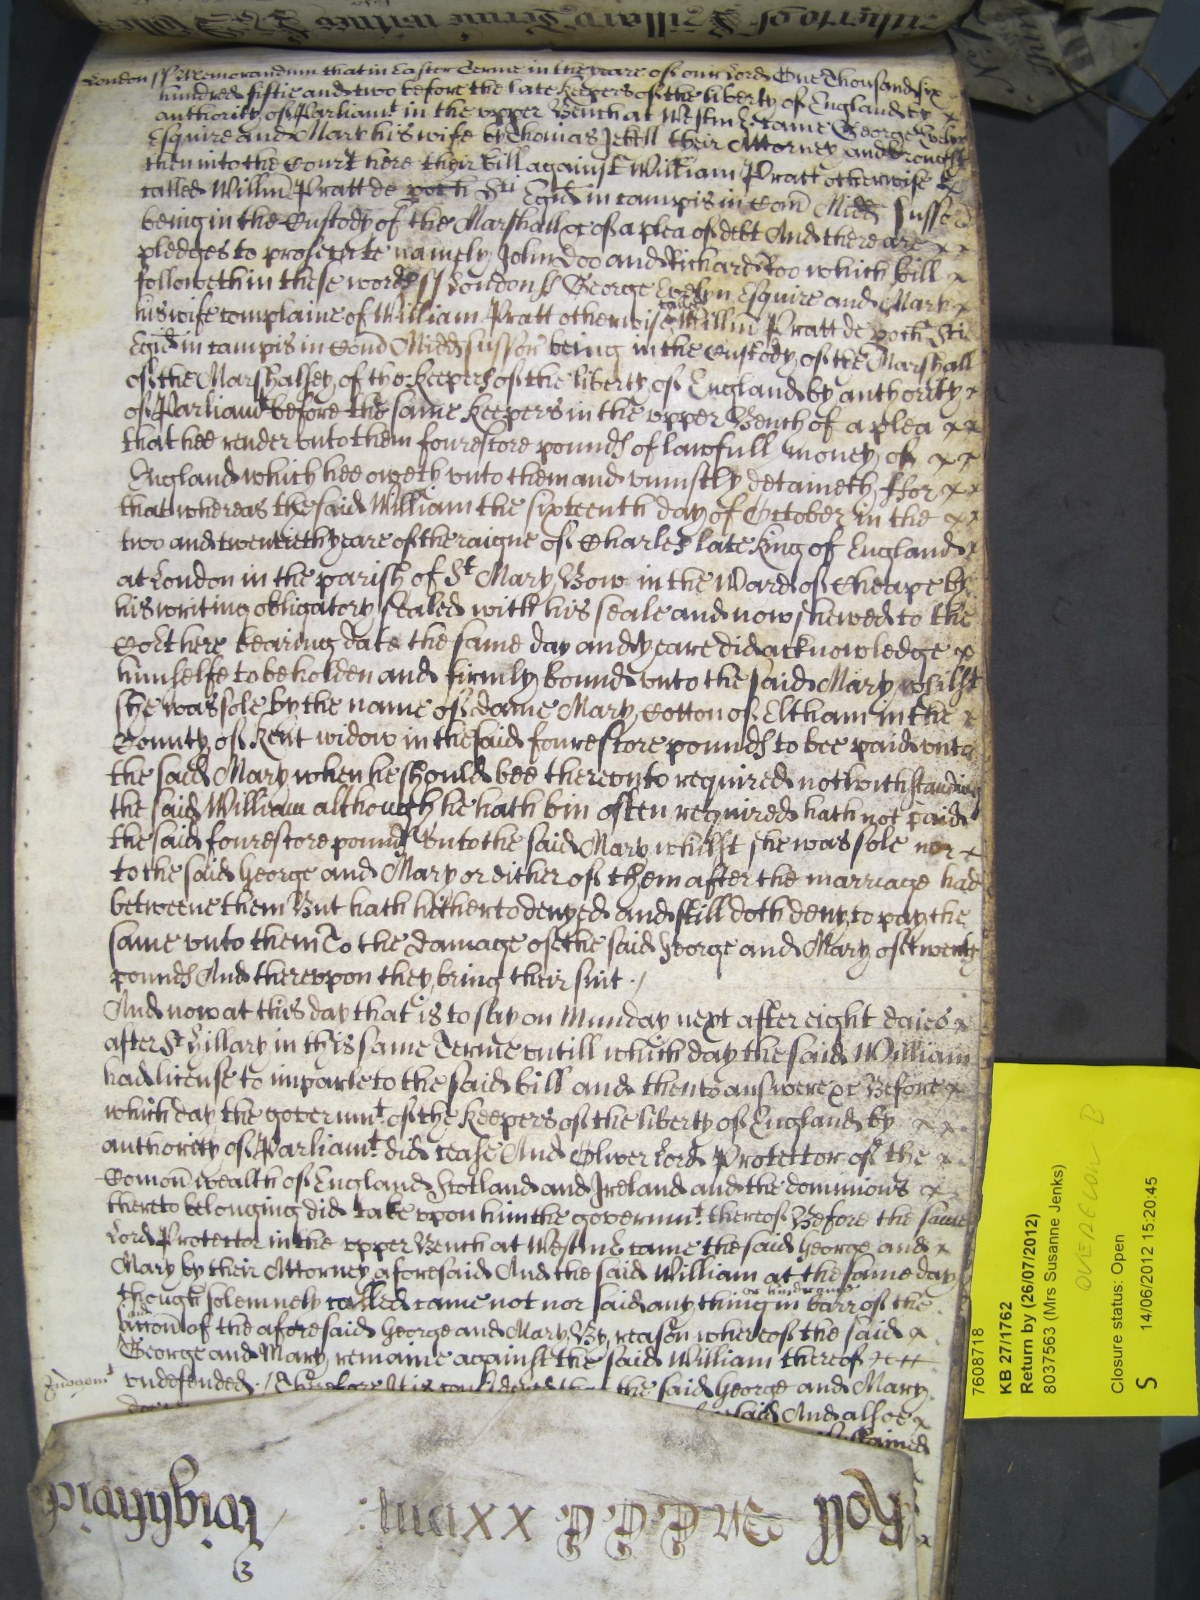 London ss Memorandum that in Easter Terme in the yeare of our Lord One Thousand six
hundred fiftie and two before the late keepers of the liberty of England by
authority of Parliamt in the upper Bench at Westm̄ came George Evelyn
Esquire and Mary his wife by Thomas Jekell their Attorney and brought
then into the Court here their bill against William Pratt otherwise
called Willm̄ Pratt de poch Sti Egid in campis in Com̄ Midd̄
being in the Custody of the Marshall &c of a plea of debt And there are
pledges to prosecute namely John Doo and Richard Roo which bill
followeth in these words ss London ss George Evelyn Esquire and Mary
his wife complaine of William Pratt otherwise called Willm̄ Pratt de poch Sti
Egid in campis in Com̄ Midd̄ being in the Custody of the Marshall
of the Marshalsey of the keepers of the liberty of England by authority
of Parliamt before the same keepers in the upper Bench of a plea
that hee render unto them fourescore pounds of lawfull money of
England which hee oweth unto them and uniustly detaineth ffor
that whereas the said William the sixteenth day of October in the
two and twentieth yeare of the raigne of Charles late King of England
at London in the parish of St Mary Bow in the Ward of Cheape by
his writing obligatory sealed with his seale and now shewed to the
Cort here bearing date the same day and yeare did acknowledge
himselfe to be holden and firmly bound unto the said Mary whilst
she was sole by the name of dame Mary Cotton of Eltham in the
County of Kent widow in the said fourescore pounds to bee paid unto
the said Mary when he should bee thereunto required notwithstanding
the said William although he hath bin often required hath not paid
the said fourescore pounds unto the said Mary whilst she was sole nor
to the said George and Mary or either of them after the marriage had
betweene them But hath hitherto denyed and still doth deny to pay the
same unto them To the damage of the said George and Mary of twenty
pounds And thereupon they bring their suit
And now at this day that is to say on Munday next after eight daies
after St Hillary in this same Terme untill which day the said William
had license to imparle to the said bill and then to answere &c Before
which day the governmt of the keepers of the liberty of England by
authority of Parliamt did cease And Oliver Lord Protector of the
Com̄onwealth of England Scotland and Ireland and the dominions
thereto belonging did take upon him the governmt thereof Before the same
Lord Protector in the upper Bench at Westm̄ came the said George and
Mary by their Attorney aforesaid And the said William at the same day
though solemnely called came not nor said any thing in barr of the
accon̄ of the aforesaid George and Mary By reason whereof the said
George and Mary remaine against the said William thereof
undefended Therefore It is considered that the said George and Mary
said And alsoe
sustained
Roll MCCC xxviiii
7608718
KB 27/1762
Return by (26/07/2012)
8037563 (Mrs Susanne Jenks)
Closure status: Open
S 14/06/2012 15:20:45